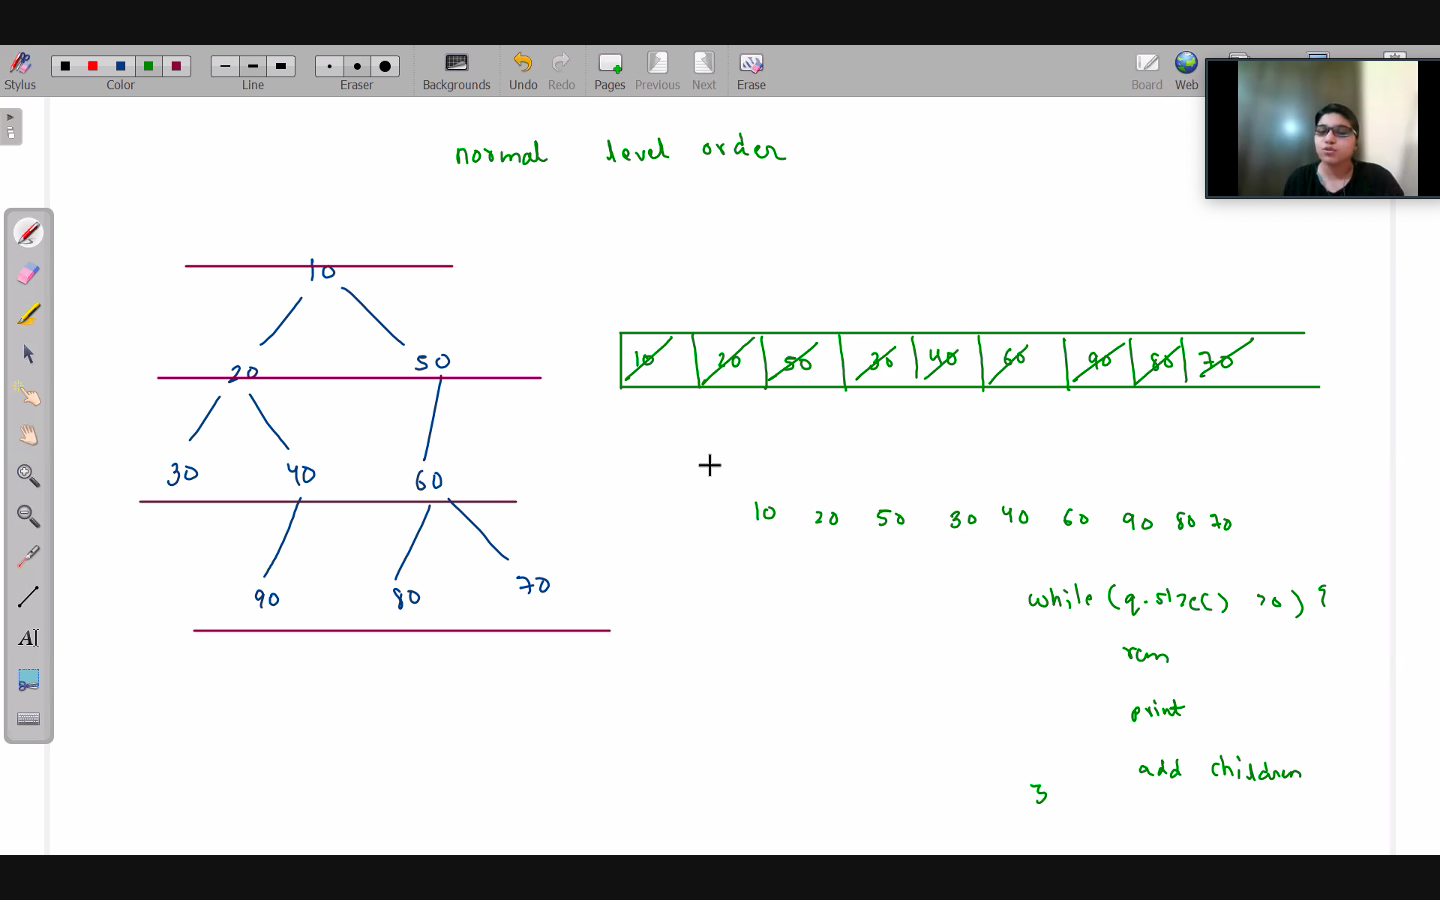 Stylus Color Line Eraser Backgrounds Undo Redo Pages Previous Next Erase Board Web
normal level order
10
20 50
30 40 60
90 80 70
10 20 50 30 40 60 90 80 70
10 20 50 30 40 60 90 80 70
while (q.size() >0) {
rem
print
add children
}